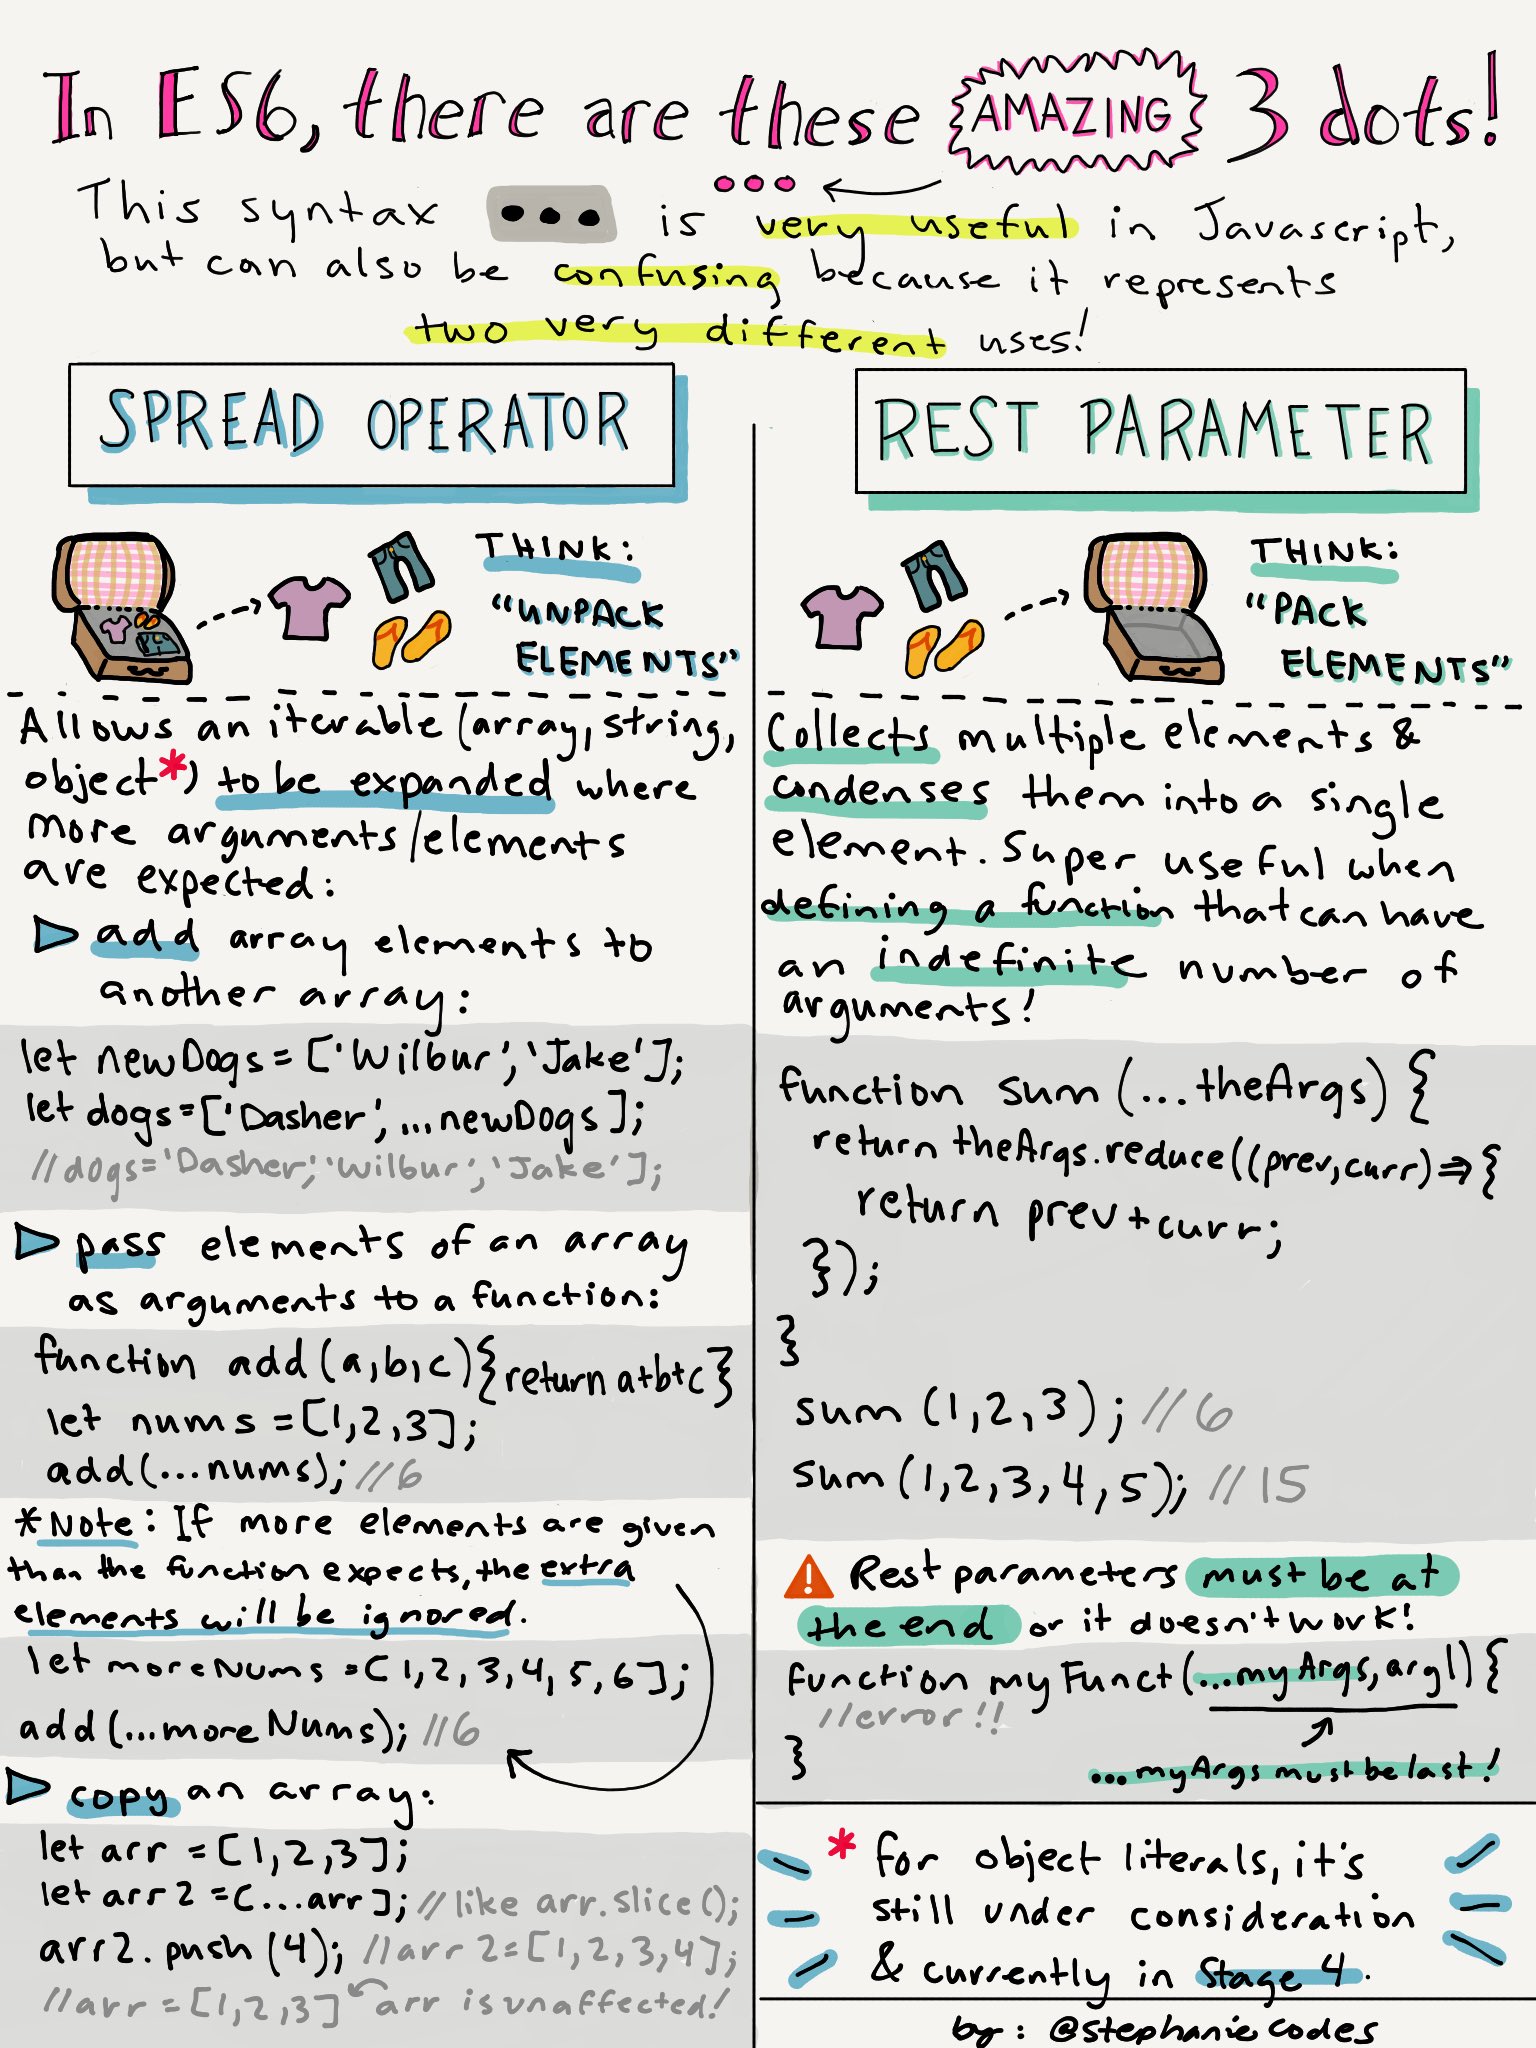 In ES6, there are these AMAZING 3 dots!
...
This syntax ... is very useful in Javascript,
but can also be confusing because it represents
two very different uses!
SPREAD OPERATOR
THINK:
"UNPACK
ELEMENTS"
Allows an iterable (array, string,
object*) to be expanded where
more arguments/elements
are expected:
add array elements to
another array:
let newDogs = ['Wilbur', 'Jake'];
let dogs = ['Dasher', ...newDogs];
//dogs = 'Dasher', 'Wilbur', 'Jake'];
pass elements of an array
as arguments to a function:
function add(a,b,c){return a+b+c}
let nums = [1,2,3];
add(...nums); //6
*Note: If more elements are given
than the function expects, the extra
elements will be ignored.
let moreNums = [1,2,3,4,5,6];
add(...moreNums); //6
copy an array:
let arr = [1,2,3];
let arr2 = [...arr]; //like arr.slice();
arr2.push(4); //arr2=[1,2,3,4];
//arr = [1,2,3] arr is unaffected!
REST PARAMETER
THINK:
"PACK
ELEMENTS"
Collects multiple elements &
condenses them into a single
element. Super useful when
defining a function that can have
an indefinite number of
arguments!
function sum (...theArgs) {
return theArgs.reduce((prev,curr) => {
return prev + curr;
});
}
sum (1,2,3); //6
sum (1,2,3,4,5); //15
! Rest parameters must be at
the end or it doesn't work!
function myFunct(...myArgs, arg1) {
//error!!
}
...myArgs must be last!
* for object literals, it's
still under consideration
& currently in Stage 4.
by: @stephaniecodes